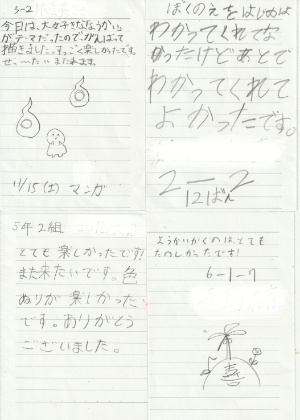 3-2
今日は、大好きなようかい
がテーマだったのでがんばって
描きました。すっごく楽しかったです
11/15(土) マンガ
ぼくのえをはじめは
わかってくれてな
かったけどあとで
わかってくれて
よかったです。
2-2
12ばん
5年2組
とても楽しかったです!
また来たいです。色
ぬりが楽しかった
です。ありがとう
ございました。
ようかいかくのは、とても
たのしかったです!
6-1-7